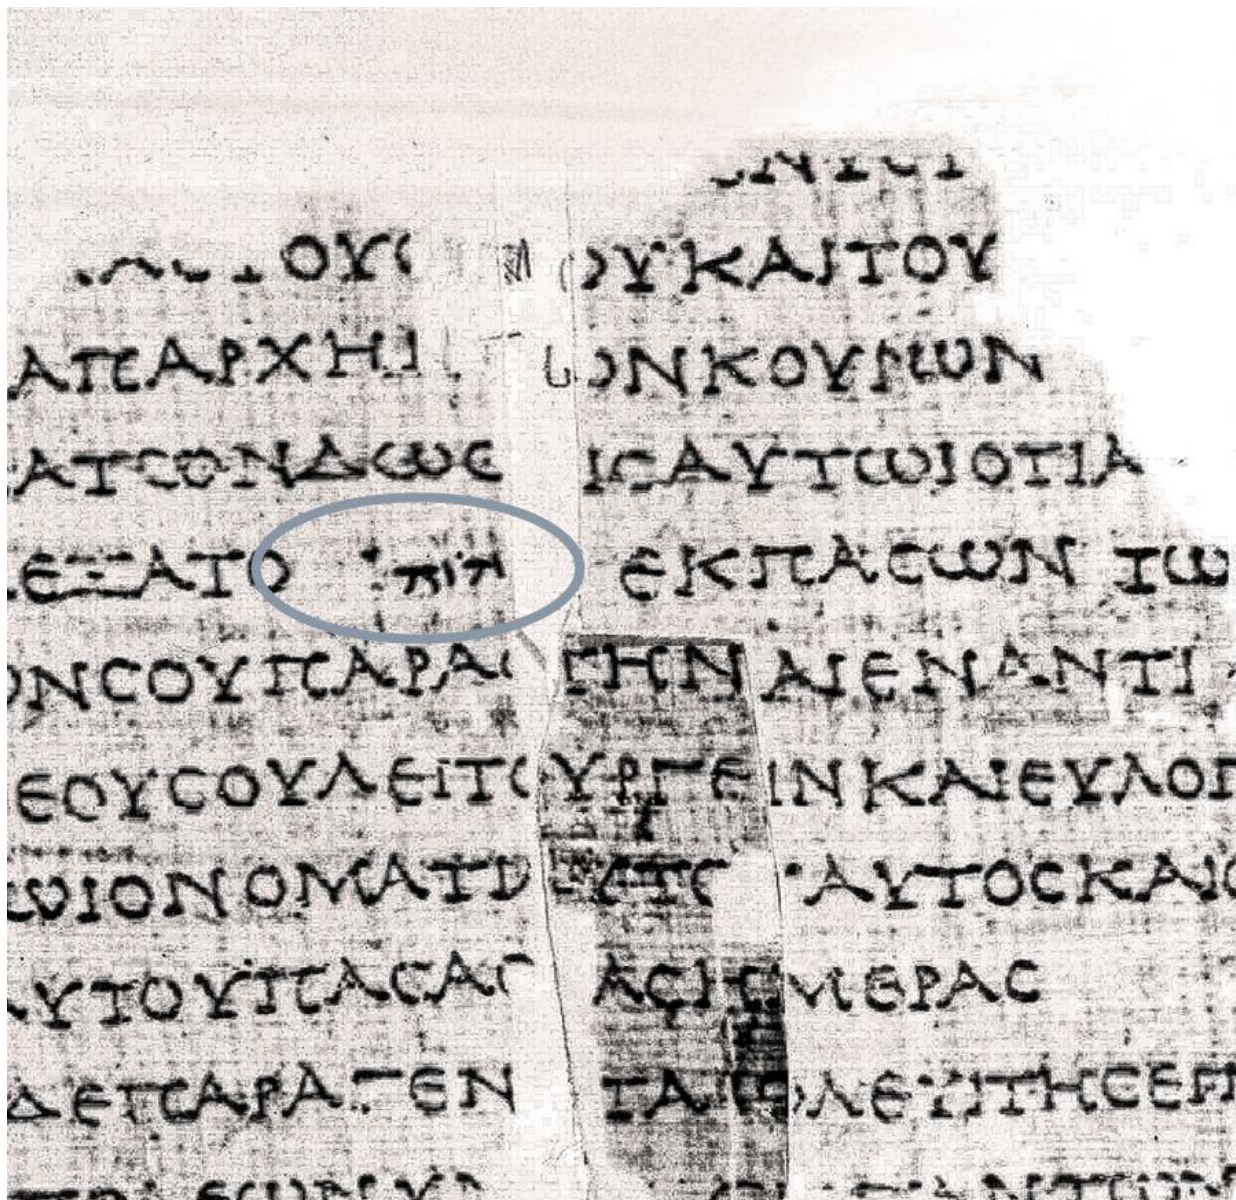 ΟΥϹ ΟΥΚΑΙΤΟΥ
ΑΠΑΡΧΗ ΩΝΚΟΥΡΩΝ
ΑΤΩΝΔΩϹΕ ΙϹΑΥΤΩΙΟΤΙΑ
ΕΞΑΤΟ יהוה ΕΚΠΑϹΩΝ ΤΩ
ΩΝϹΟΥΠΑΡΑϹ ΤΗΝΑΙΕΝΑΝΤΙ
ΕΟΥϹΟΥΛΕΙΤΟΥΡΓΕΙΝΚΑΙΕΥΛΟΓ
ΩΙΟΝΟΜΑΤΙ ΑΥΤΟ ΑΥΤΟϹΚΑΙΟ
ΑΥΤΟΥΠΑϹΑϹ ΑϹΗΜΕΡΑϹ
ΔΕΠΑΡΑΓΕΝ ΤΑΙΟΛΕΥΙΤΗϹΕ